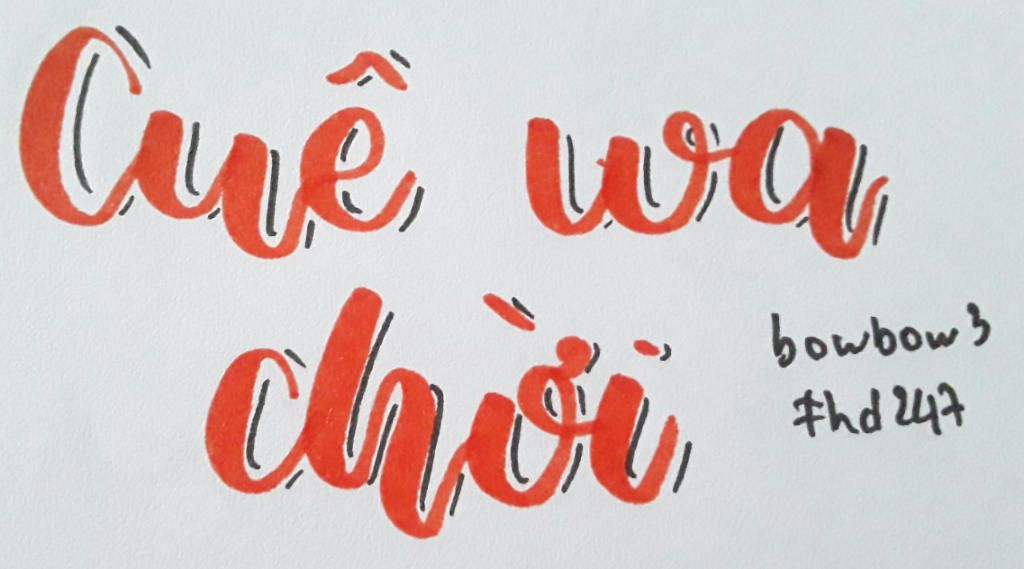 Cuê wa
chời
bowbow3
7hd247